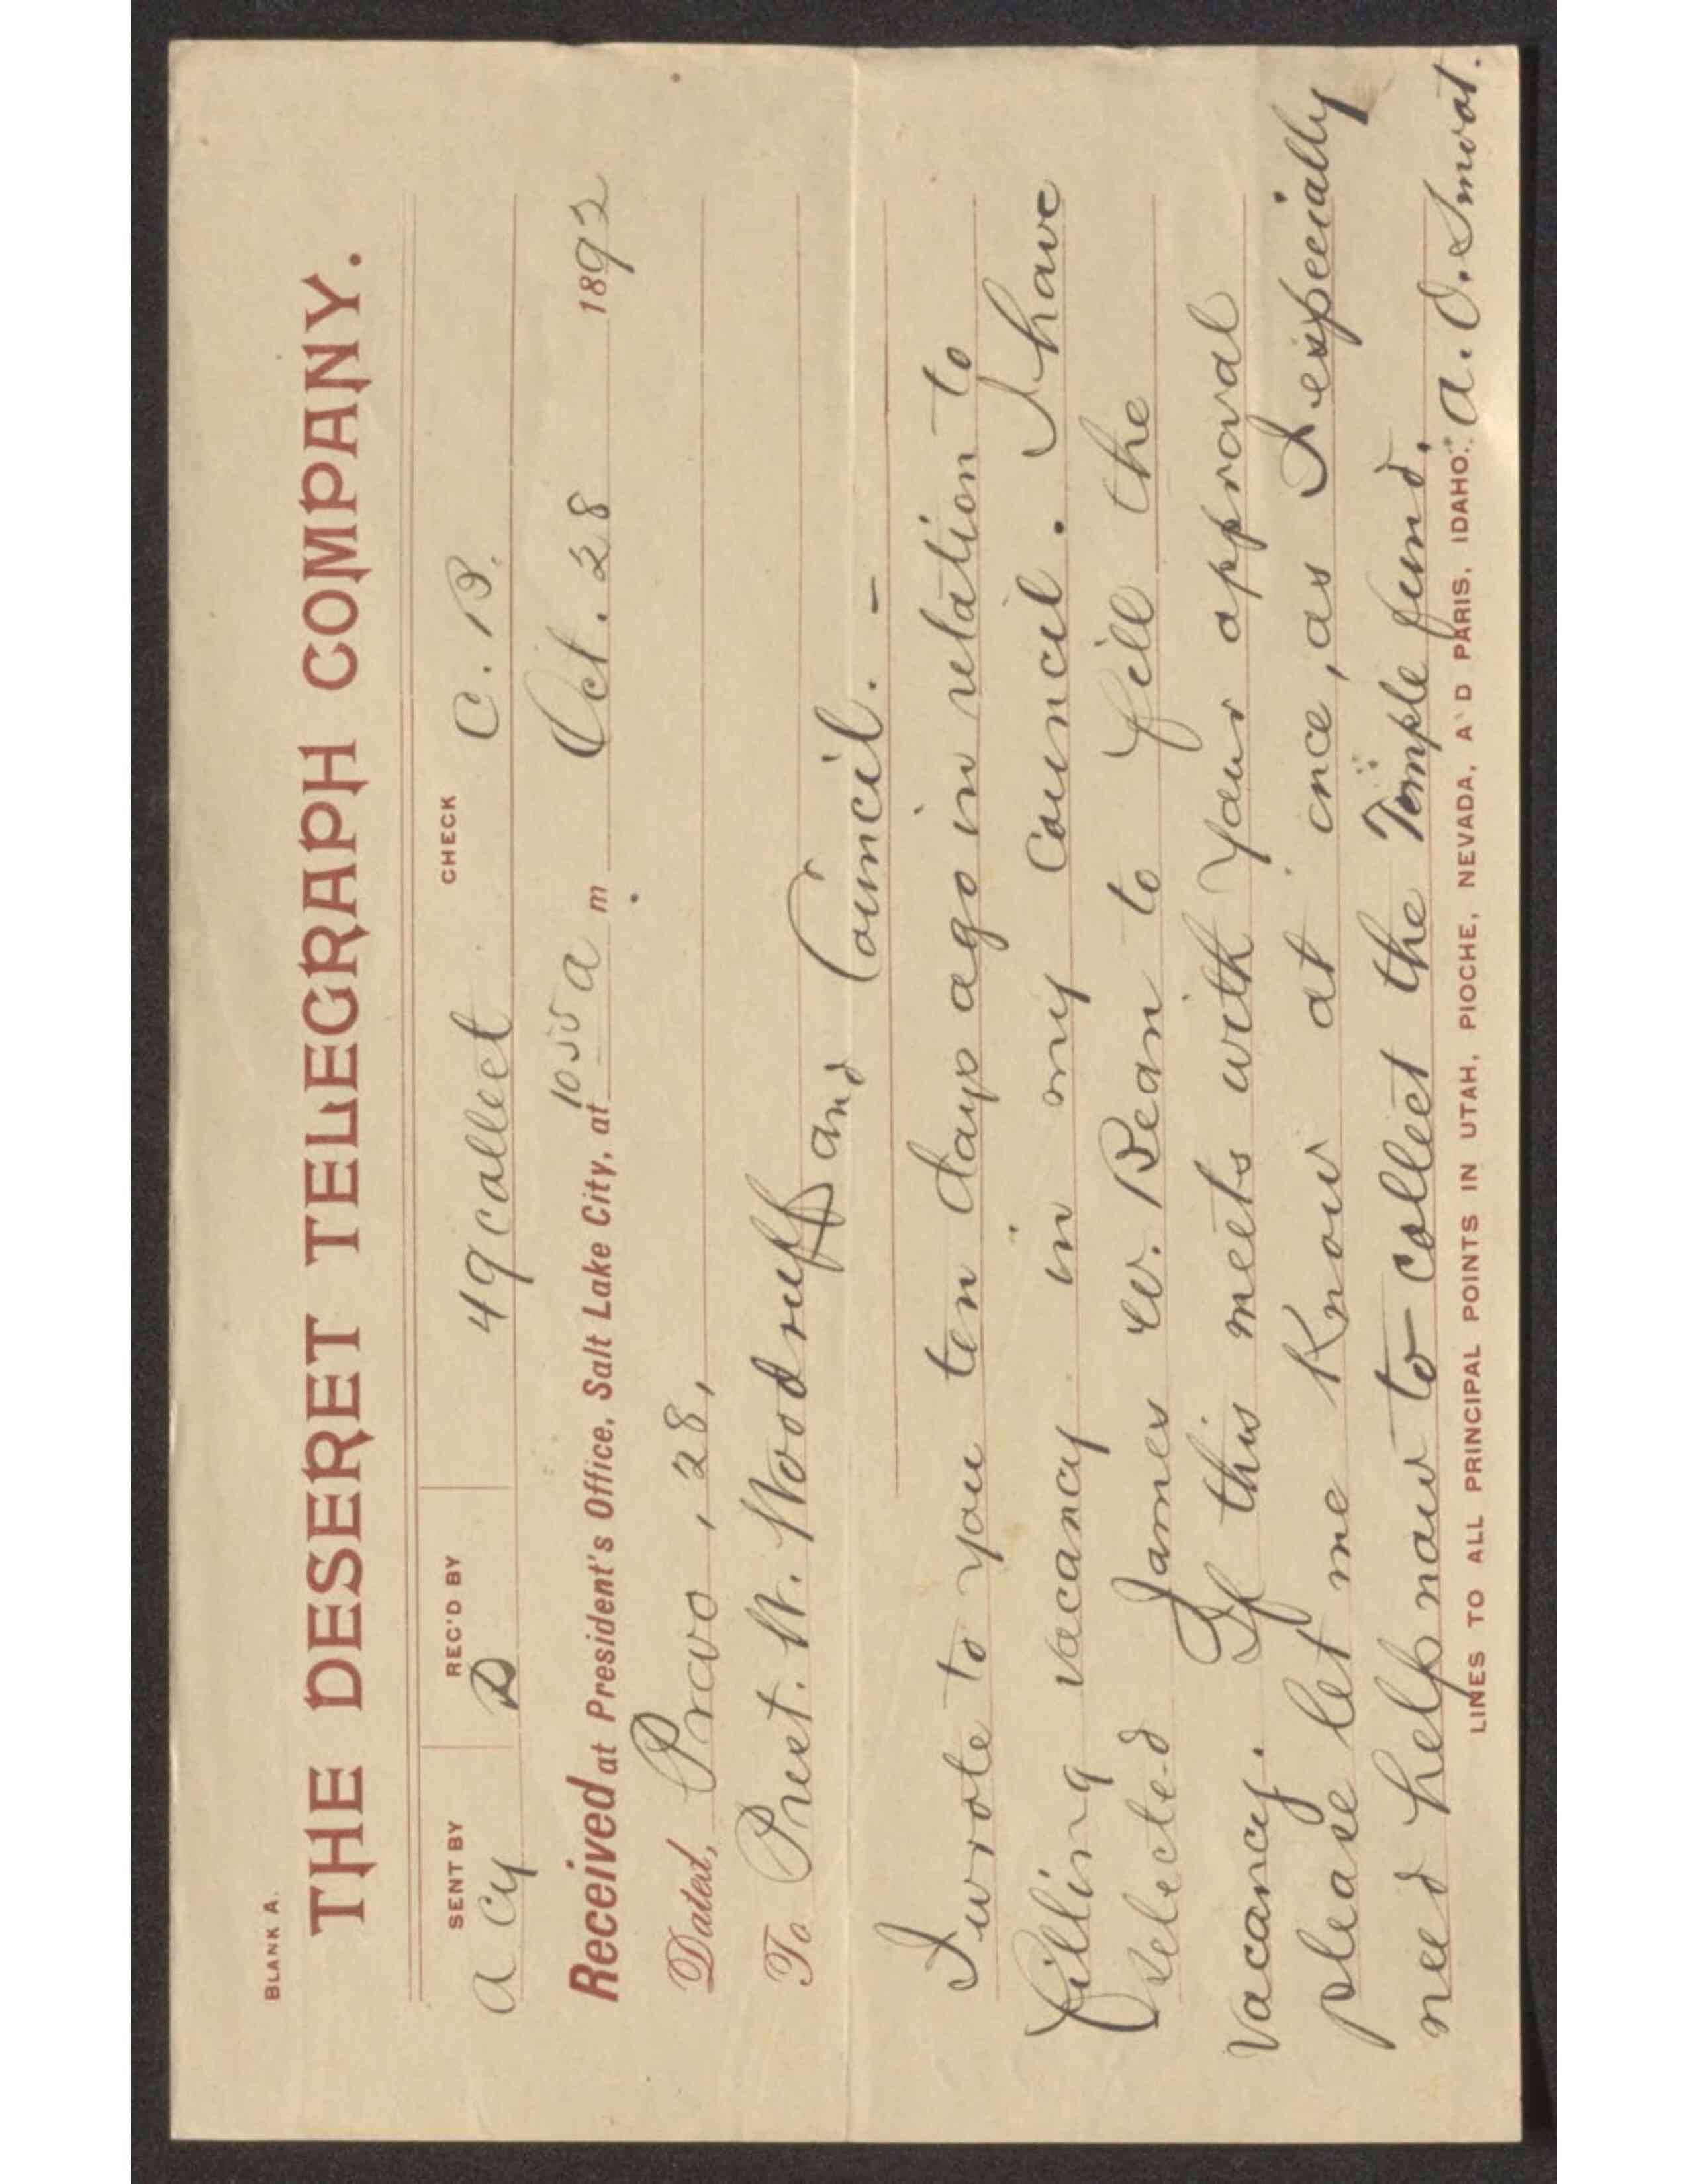 BLANK A.
THE DESERET TELEGRAPH COMPANY.
SENT BY REC'D BY CHECK
a cy D 49 collect C. B.
Received at President's Office, Salt Lake City, at 1055 a m Oct. 28 1892
Dated, Provo, 28,
To Prest. W. Woodruff and Council. –
I wrote to you ten days ago in relation to
filling vacancy in my Council. I have
selected James W. Bean to fill the
vacancy. If this meets with your approval
please let me know at once, as I especially
need help now to collect the Temple fund.
LINES TO ALL PRINCIPAL POINTS IN UTAH, PIOCHE, NEVADA, A D PARIS, IDAHO. A. O. Smoot.